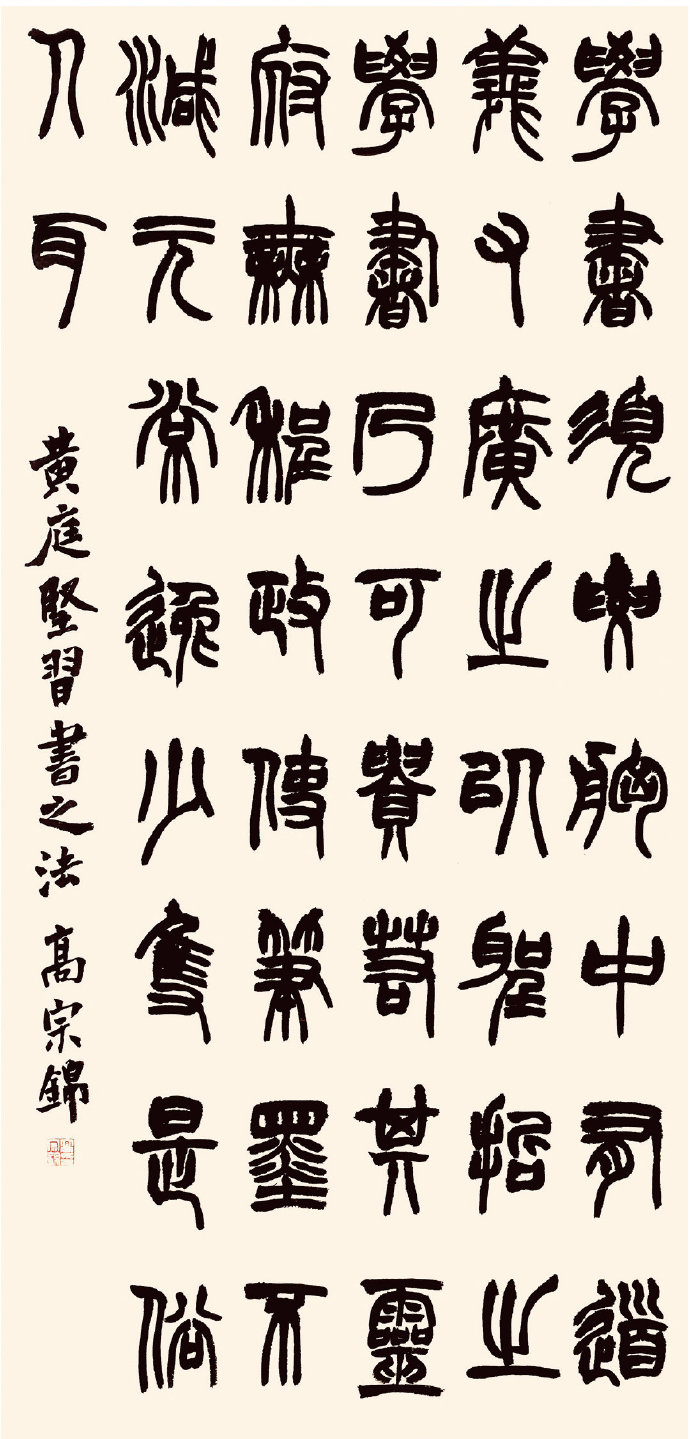 學書須要胸中有道
義又廣之以聖哲之
學書乃可貴若其靈
府無程政使筆墨不
減元常逸少隻是俗
人耳
黃庭堅習書之法 高宗錦